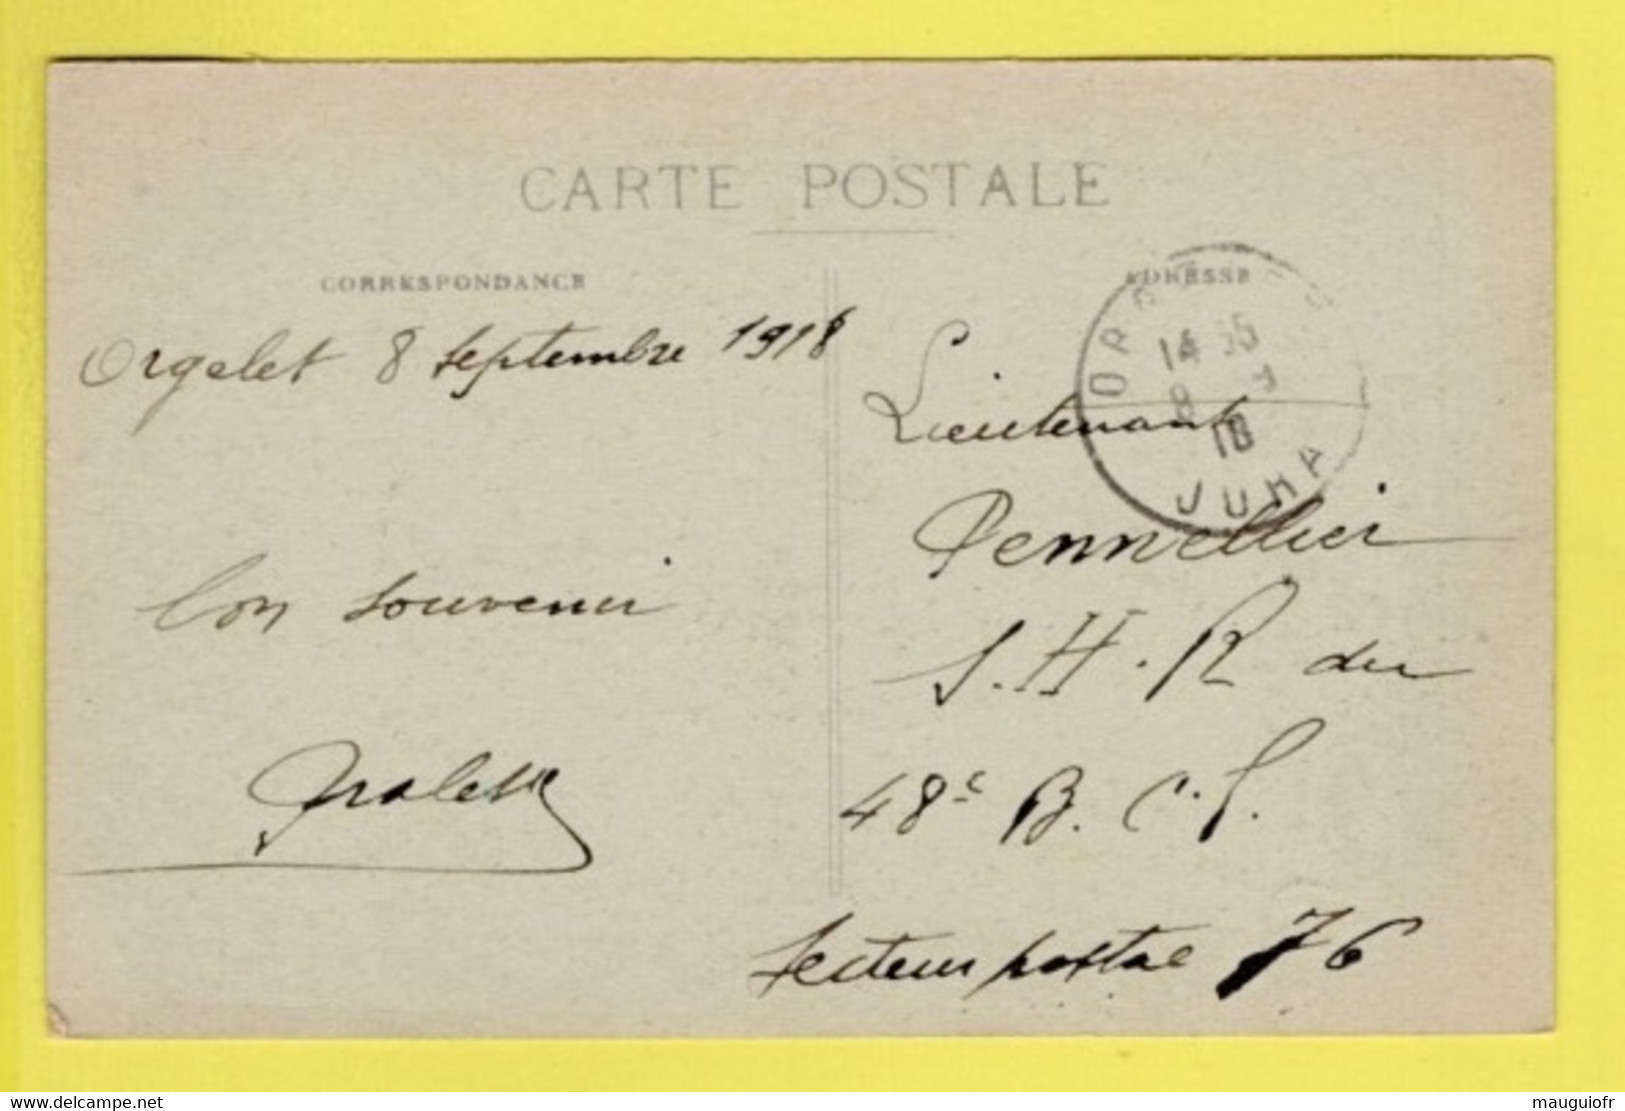 CARTE POSTALE
CORRESPONDANCE
Orgelet 8 septembre 1918
Bon souvenir
ADRESSE
14 35
8 9
18
JURA
Lieutenant
Pennellier
S.H.R du
48e B.C.P.
Secteur postal 76
delcampe.net
mauguiofr